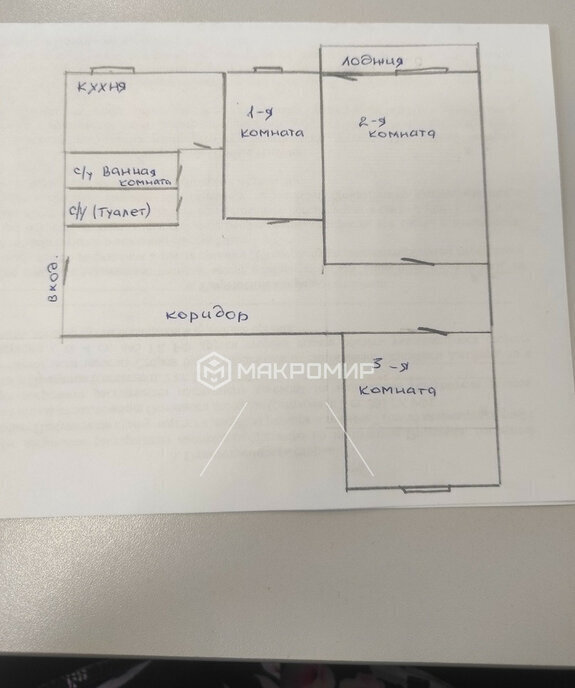 лоджия
кухня
1-я
комната
2-я
комната
с/у Ванная
комната
с/у (туалет)
вход.
коридор
МАКРОМИР
3-я
комната